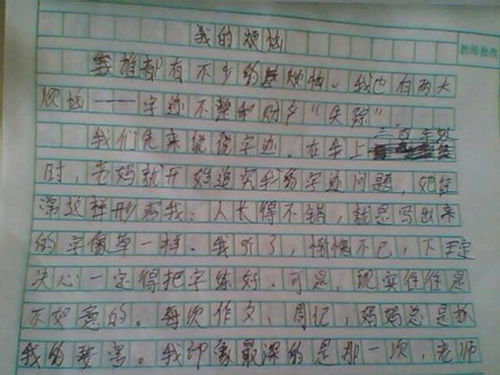 我的烦恼
我谁都有不少的烦恼。我也有两大
烦恼——字迹不整和财产“失踪”
我们先来说说字迹。在我上三年级
时，老妈就开始追究我的字迹问题，她经
常这样形容我：人长得不错，就是写出来
的字像草一样。我听了，惭愧不已，下定
决心一定得把字练好。可是，现实往往是
不如意的。每次作文、周记，妈妈总是
我的。我印象最深的是那一次，老师